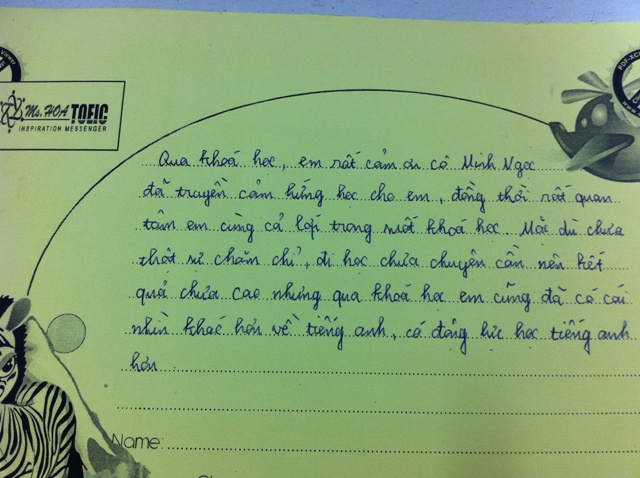 Ms. HOA TOEIC
INSPIRATION MESSENGER
Qua khoá học, em rất cảm ơn cô Minh Ngọc
đã truyền cảm hứng học cho em, đồng thời rất quan
tâm em cùng cả lớp trong suốt khoá học. Mặc dù chưa
thật sự chăm chỉ, đi học chưa chuyên cần nên kết
quả chưa cao nhưng qua khoá học em cũng đã có cái
nhìn khác hơn về tiếng anh, có động lực học tiếng anh
hơn.
Name: